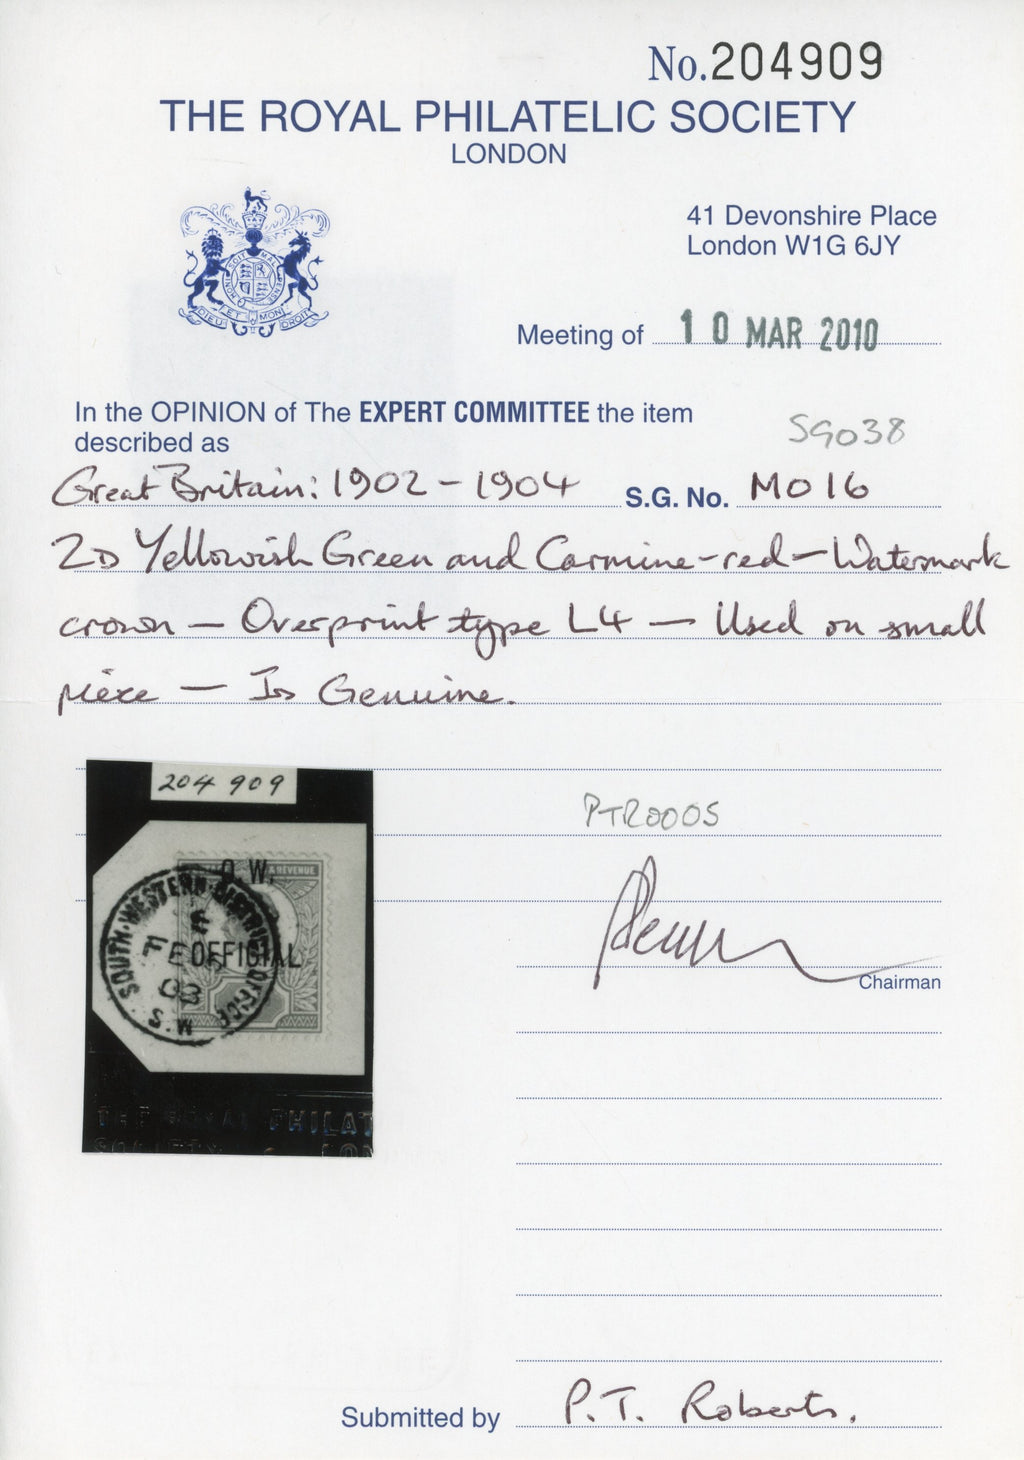 No. 204909
THE ROYAL PHILATELIC SOCIETY
LONDON
41 Devonshire Place
London W1G 6JY
Meeting of 10 MAR 2010
In the OPINION of The EXPERT COMMITTEE the item
described as
SGO38
Great Britain: 1902 - 1904 S.G. No. MO16
2D Yellowish Green and Carmine-red - Watermark
crown - Overprint type L4 - Used on small
piece - Is Genuine.
204 909
O.W.
& REVENUE
OFFICIAL
SOUTH·WESTERN·DISTRICT·OFFICE
S.W.
THE ROYAL PHILAT
SOCIETY LON
PTR0005
Chairman
Submitted by P.T. Roberts.